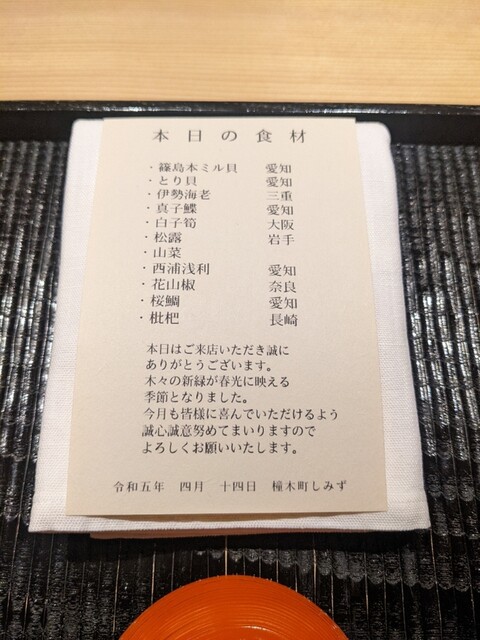 本日の食材
・篠島本ミル貝　愛知
・とり貝　愛知
・伊勢海老　三重
・真子鰈　愛知
・白子筍　大阪
・松露　岩手
・山菜
・西浦浅利　愛知
・花山椒　奈良
・桜鯛　愛知
・枇杷　長崎
本日はご来店いただき誠に
ありがとうございます。
木々の新緑が春光に映える
季節となりました。
今月も皆様に喜んでいただけるよう
誠心誠意努めてまいりますので
よろしくお願いいたします。
令和五年　四月　十四日　橦木町しみず